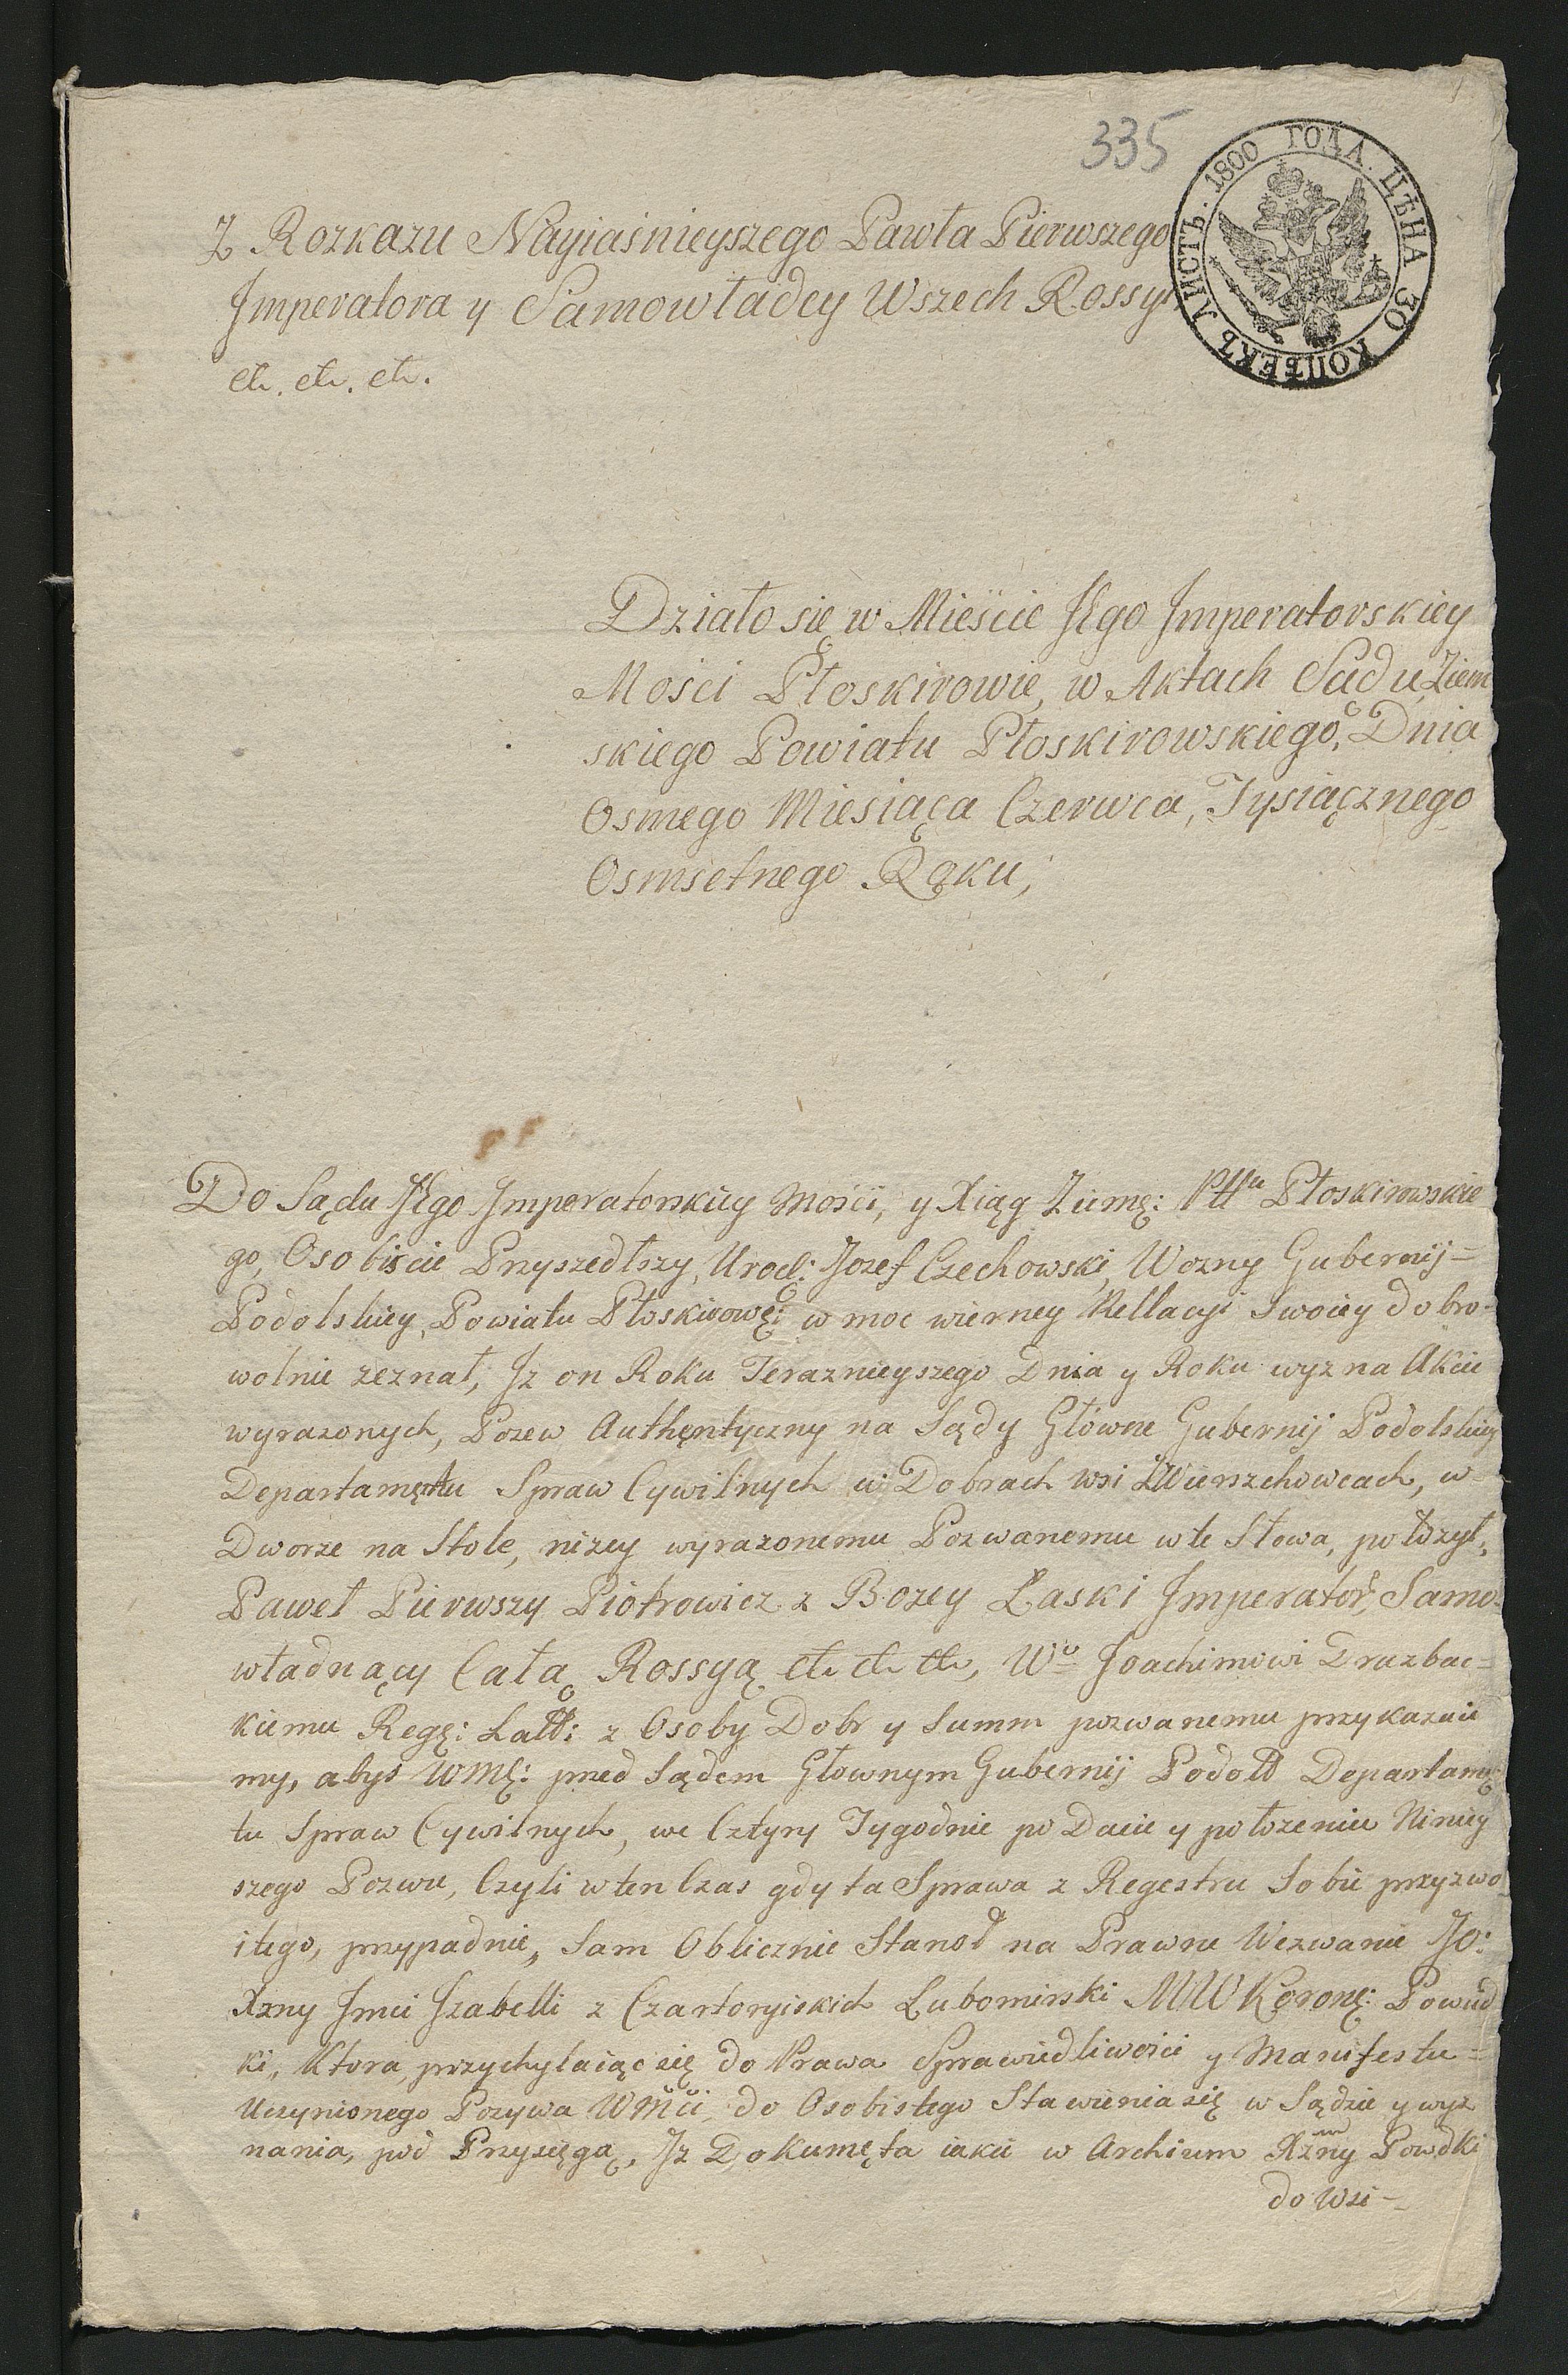 335
1800 ГОДА. ЦѢНА 30 КОПѢЕКЪ ЛИСТЪ.
Z Rozkazu Nayiaśnieyszego Pawła Pierwszego
Imperatora y Samowładcy Wszech Rossyi
etc. etc. etc.
Działo się w Mieście JEgo Imperatorskiey
Mości Płoskirowie, w Aktach Sądu Ziem
skiego Powiatu Płoskirowskiego, Dnia
Osmego Miesiąca Czerwca, Tysiącznego
Osmsetnego Roku;
Do Sądu JEgo Imperatorskiey Mości, y Xiąg Ziemę: Płoskirowskie
go, Osobiście Przyszedłszy, Urodz: Jozef Czechowski, Wozny Gubernij=
Podolskiey, Powiatu Płoskirowę: w moc wierney Rellacyi Swoiey dobro-
wolnie zeznał, Iz on Roku Teraznieyszego Dnia y Roku wyz na Akcie
wyrazonych, Pozew Authęntyczny na Sądy Główne Gubernij Podolskiey
Departamętu Spraw Cywilnych w Dobrach wsi Wierzchowcach, w
Dworze na Stole, nizey wyrazonemu Pozwanemu w te Słowa, położył,
Paweł Pierwszy Piotrowicz z Bozey Łaski Imperator, Samo
władnący Całą Rossyą etc etc etc, Wu Joachimowi Drazbac=
kiemu Regę: z Osoby Dobr y Summ pozwanemu przykazuie
my, abyś WMę: przed Sądem Głownym Gubernij Podoll Departamę
tu Spraw Cywilnych, we Cztyry Tygodnie po Dacie y położeniu Niniey
szego Pozwu, Czyli w ten Czas gdy ta Sprawa z Regestru Sobie przyzwo
itego, przypadnie, Sam Oblicznie Stanoł na Prawne Wezwanie JO:
Xzny Jmci Izabelli z Czartoryiskich Lubomirski MWKoronę: Powod
ki, Ktora, przychylaiąc się do Prawa Sprawiedliwości y Manifestu=
Uczynionego Pozywa WMći, do Osobistego Stawienia się w Sądzie y wyz
nania, pod Przysięgą, Iz Dokumęta iakie w Archium Xżny Powdki
do Wsi -